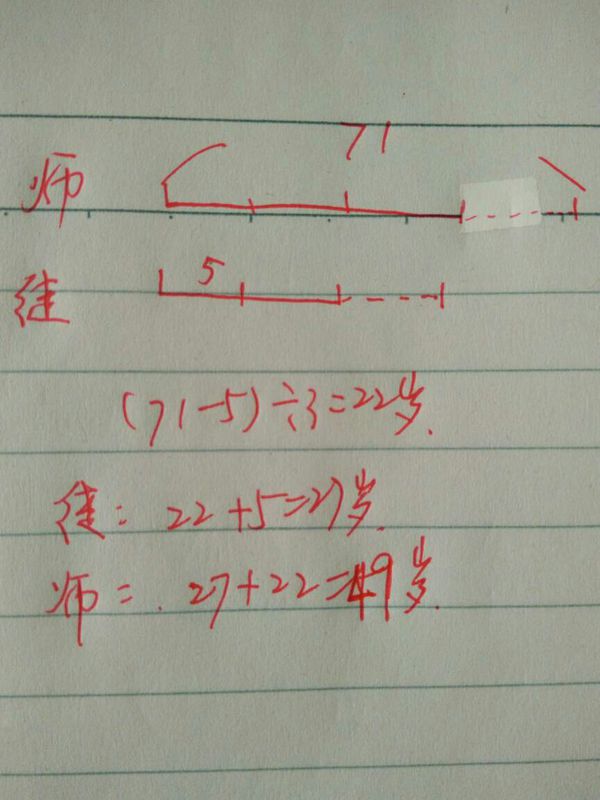 71
师
5
徒
(71-5)÷3=22岁.
徒: 22+5=27岁.
师=. 27+22=49岁.